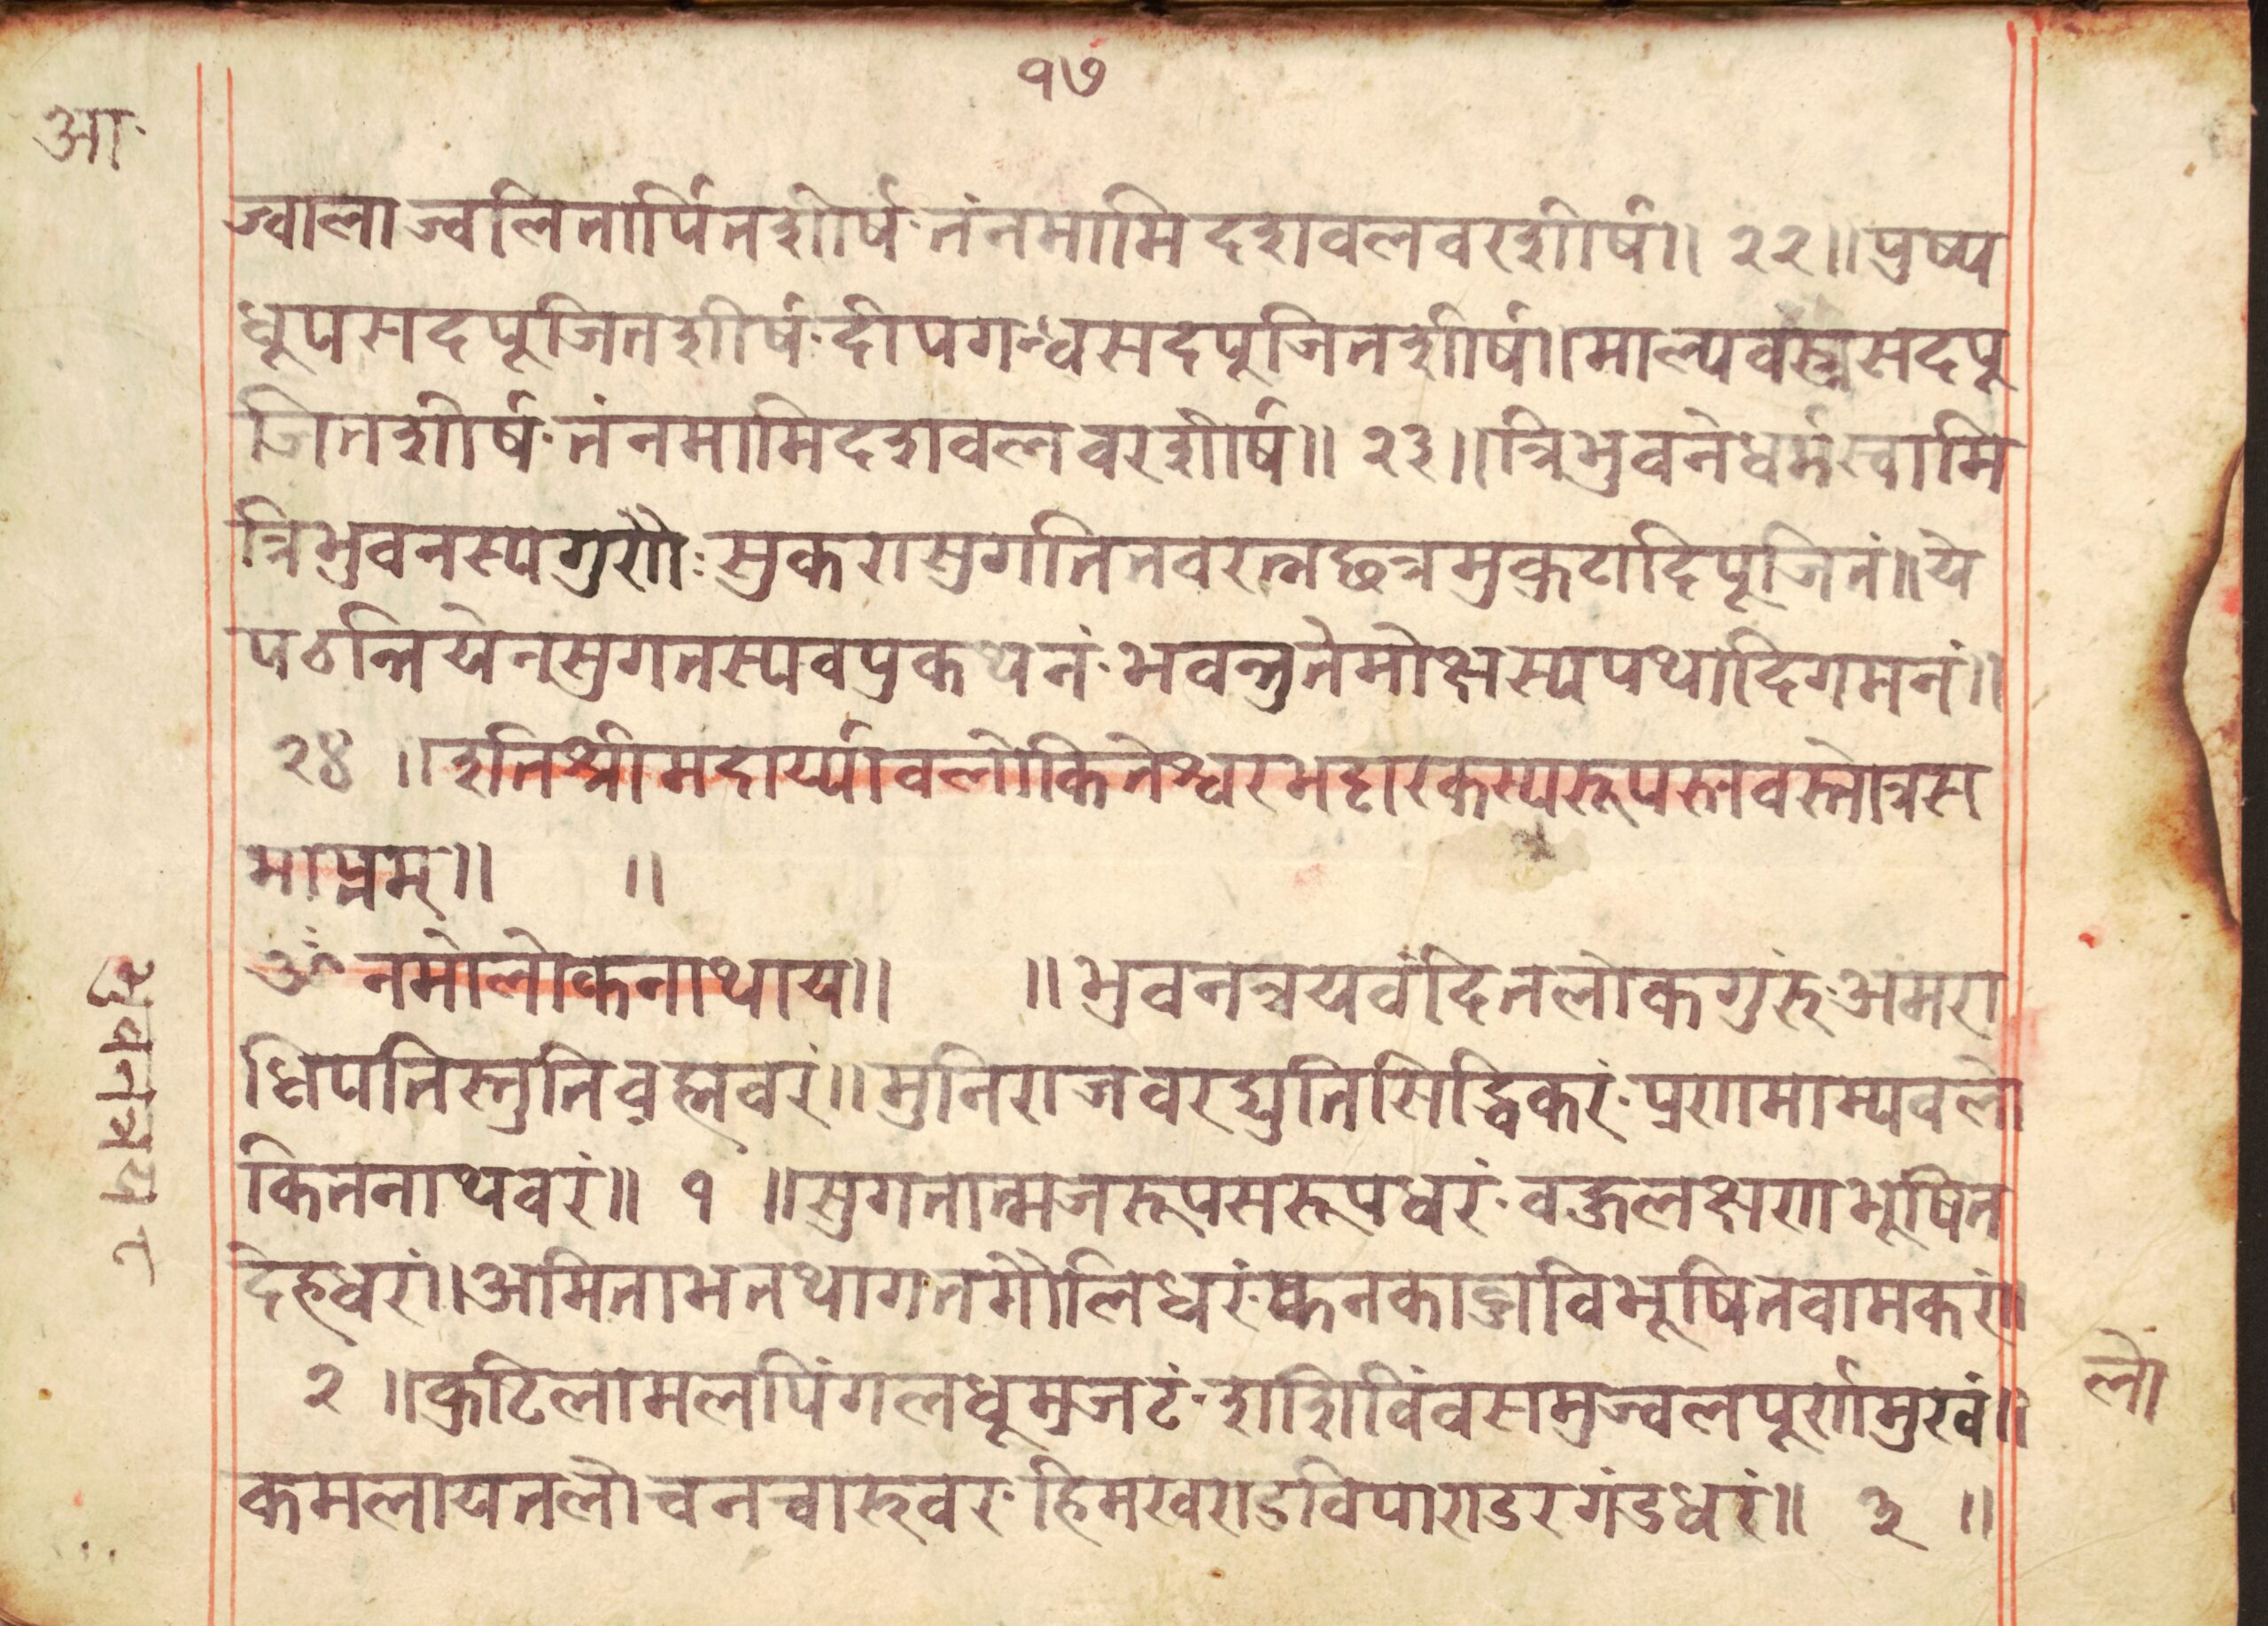 १७
आ
ज्वालाज्वलितार्पितशीर्षं॰तंनमामिदशवलवरशीर्षं॥ २२॥पुष्प
धूपसदपूजितशीर्षं॰दीपगन्धसदपूजितशीर्षं॥माल्यवस्त्रसदपू
जितशीर्षं॰तंनमामिदशवलवरशीर्षं॥ २३॥त्रिभुवनेधर्मस्वामि
त्रिभुवनस्यगुरौः॰सुकरासुगतिनवरत्नछत्रमुकुटादिपूजितं॥ये
पठन्तियेनसुगतस्यवप्रकथनं॰भवन्तुतेमोक्षस्यपथादिगमनं॥
२४ ॥इतिश्रीमदार्य्यावलोकितेश्वरभट्टारकस्यरूपस्तवस्तोत्रस
माप्तम्॥ ॥
ॐ नमोलोकनाथाय॥ ॥भुवनत्रयवंदितलोकगुरुं॰अमरा
धिपतिस्तुतिव्रह्मवरं॥मुनिराजवरद्युतिसिद्धिकरं॰प्रणमाम्यवलो
कितनाथवरं॥ १ ॥सुगतात्मजरूपसरूपधरं॰वहुलक्षणभूषित
देहधरं॥अमिताभतथागतमौलिधरं॰कनकाब्जविभूषितवामकरं॥
२ ॥कुटिलामलपिंगलधूम्रजटं॰शशिविंवसमुज्वलपूर्णमुखं॥
कमलायतलोचनचारुवरं॰हिमखण्डविपाण्डरगंडधरं॥ ३ ॥
भुवनत्रय ८
लो